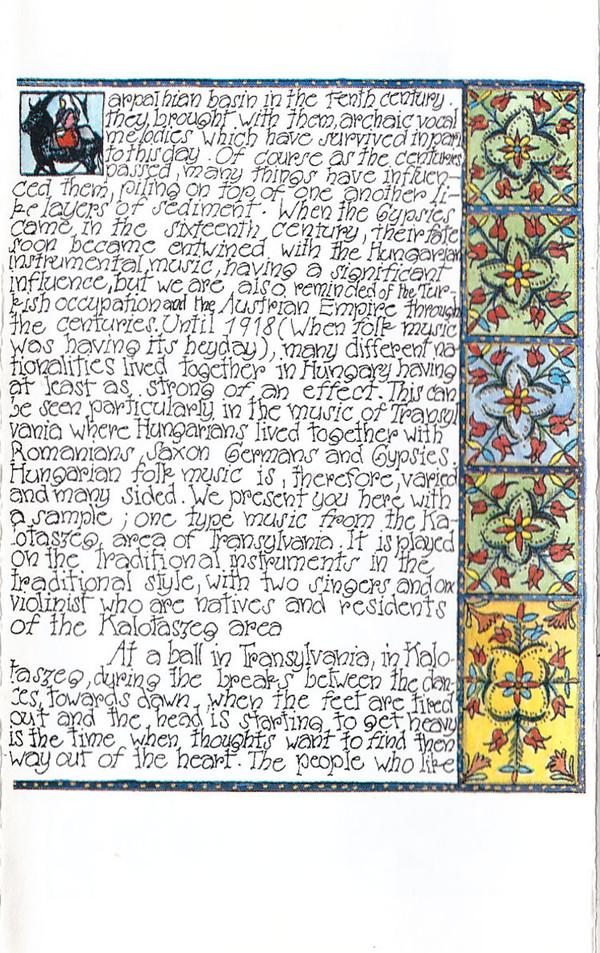 arpathian basin in the tenth century.
they brought with them, archaic vocal
melodies which have survived in part
to this day. Of course as the centuries
passed, many things have influen-
ced them, piling on top of one another li-
ke layers of sediment. When the Gypsies
came, in the sixteenth century, their fate
soon became entwined with the Hungarian
instrumental music, having a significant
influence, but we are also reminded of the Tur-
kish occupation and the Austrian Empire through
the centuries. Until 1918 (When folk music
was having its heyday), many different na
tionalities lived together in Hungary having
at least as strong of an effect. This can
be seen particularly in the music of Transyl
vania where Hungarians lived together with
Romanians, Saxon Germans and Gypsies.
Hungarian folk music is, therefore, varied
and many sided. We present you here with
a sample; one type music from the Ka-
lotaszeg area of Transylvania. It is played
on the traditional instruments in the
traditional style, with two singers and one
violinist who are natives and residents
of the Kalotaszeg area
At a ball in Transylvania, in Kalo-
taszeg, during the breaks between the dan-
ces, towards dawn, when the feet are tired
out and the head is starting to get heavy
is the time when thoughts want to find their
way out of the heart. The people who like